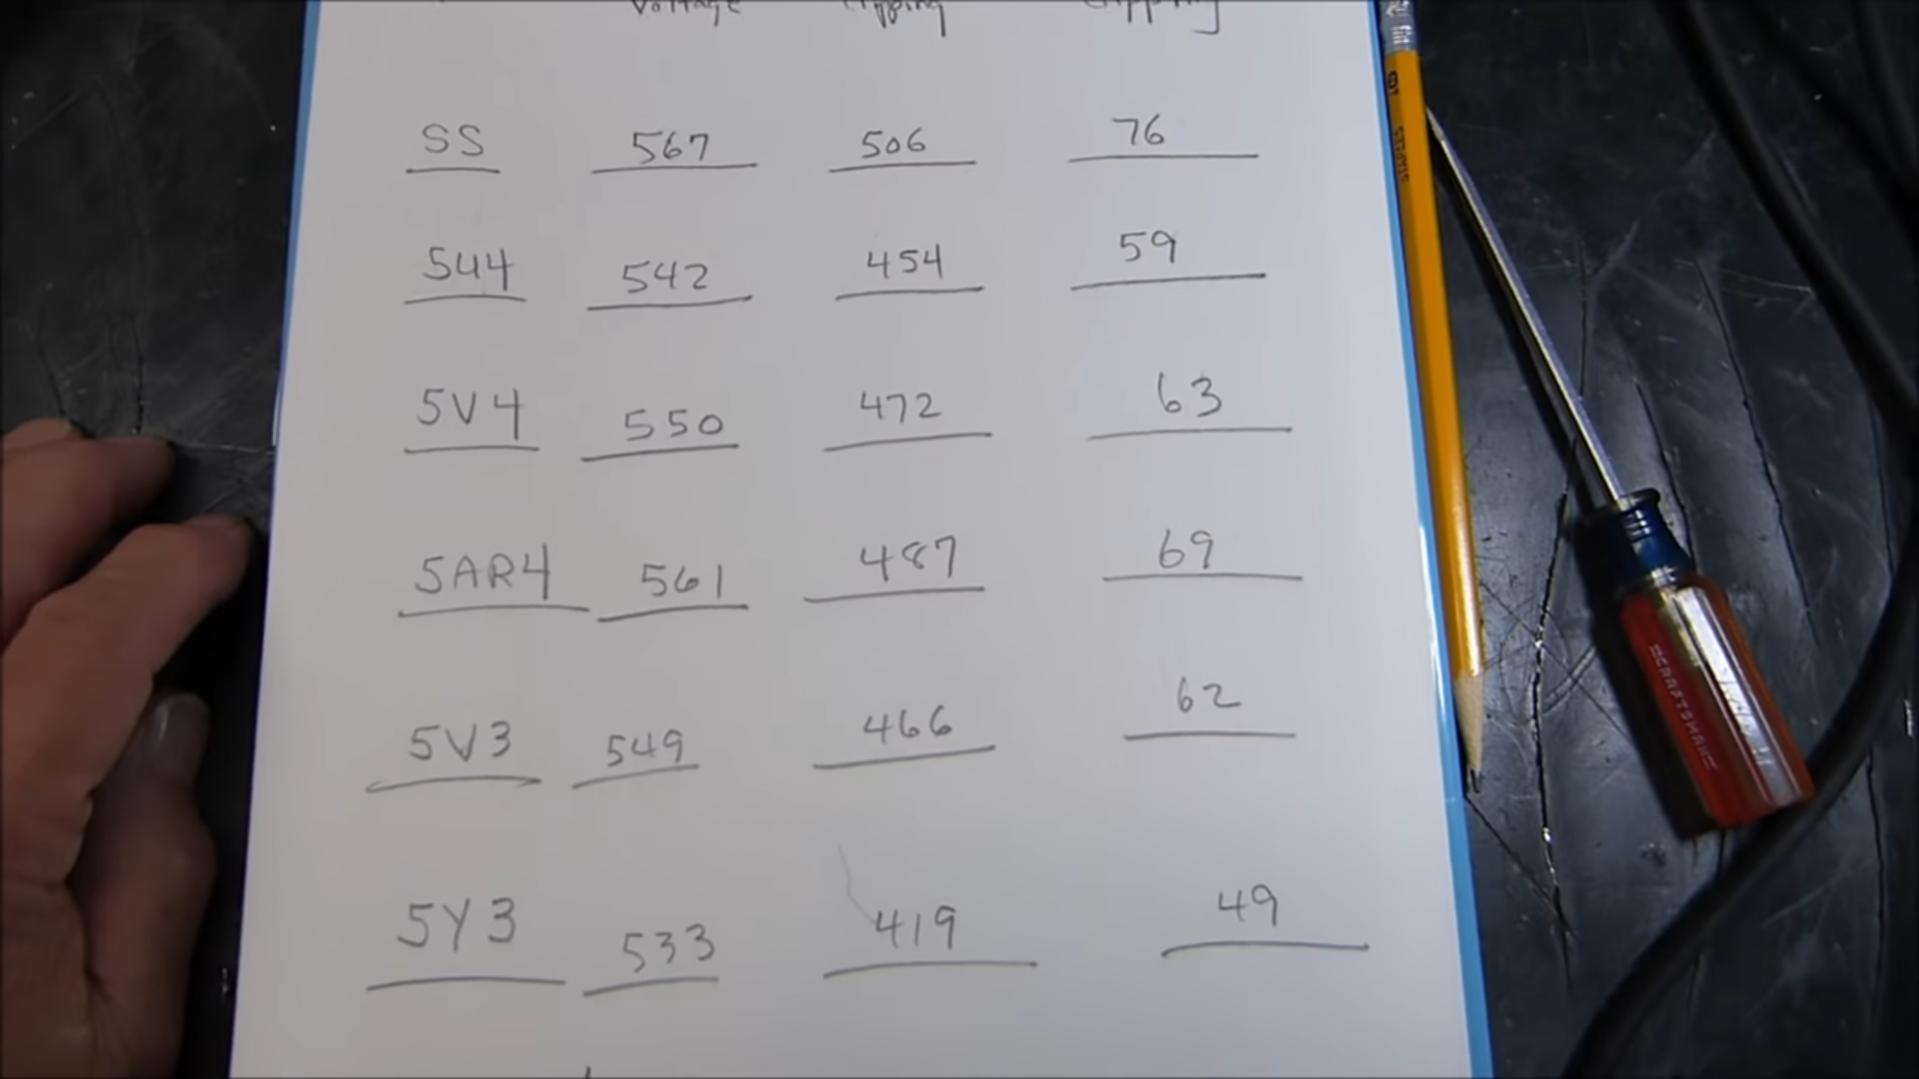 Voltage Clipping Clipping
SS 567 506 76
5U4 542 454 59
5V4 550 472 63
5AR4 561 487 69
5V3 549 466 62
5Y3 533 419 49
CRAFTSMAN